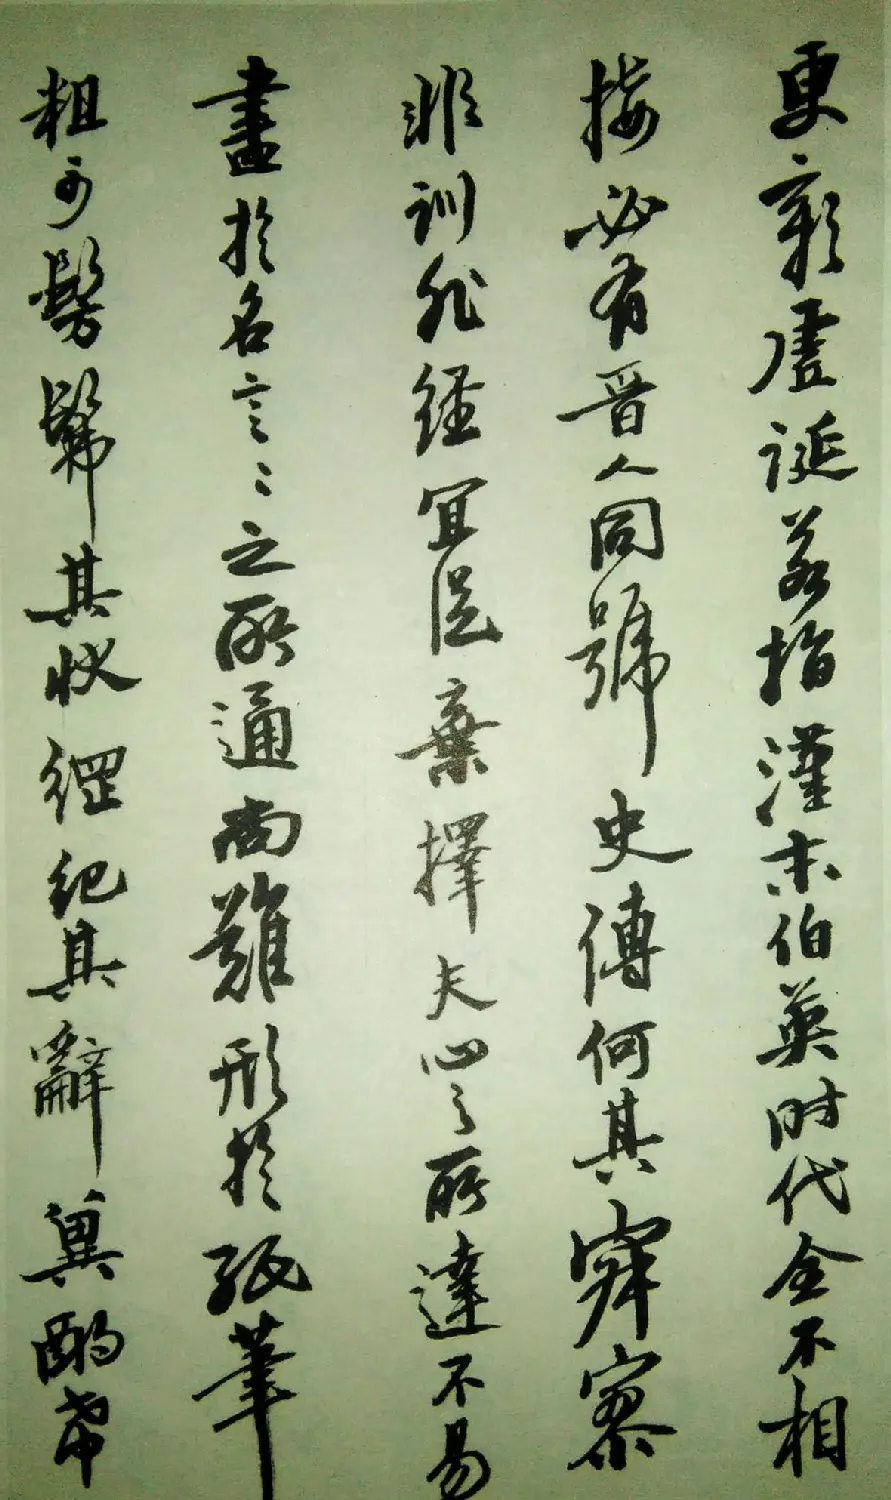 更彰虛誕若指漢末伯英时代全不相
接必有晋人同號史傳何其寂寥
非訓非經宜從棄擇夫心之所達不易
盡於名言言之所通尚難形於紙筆
粗可髣髴其狀綱紀其辭冀酌希